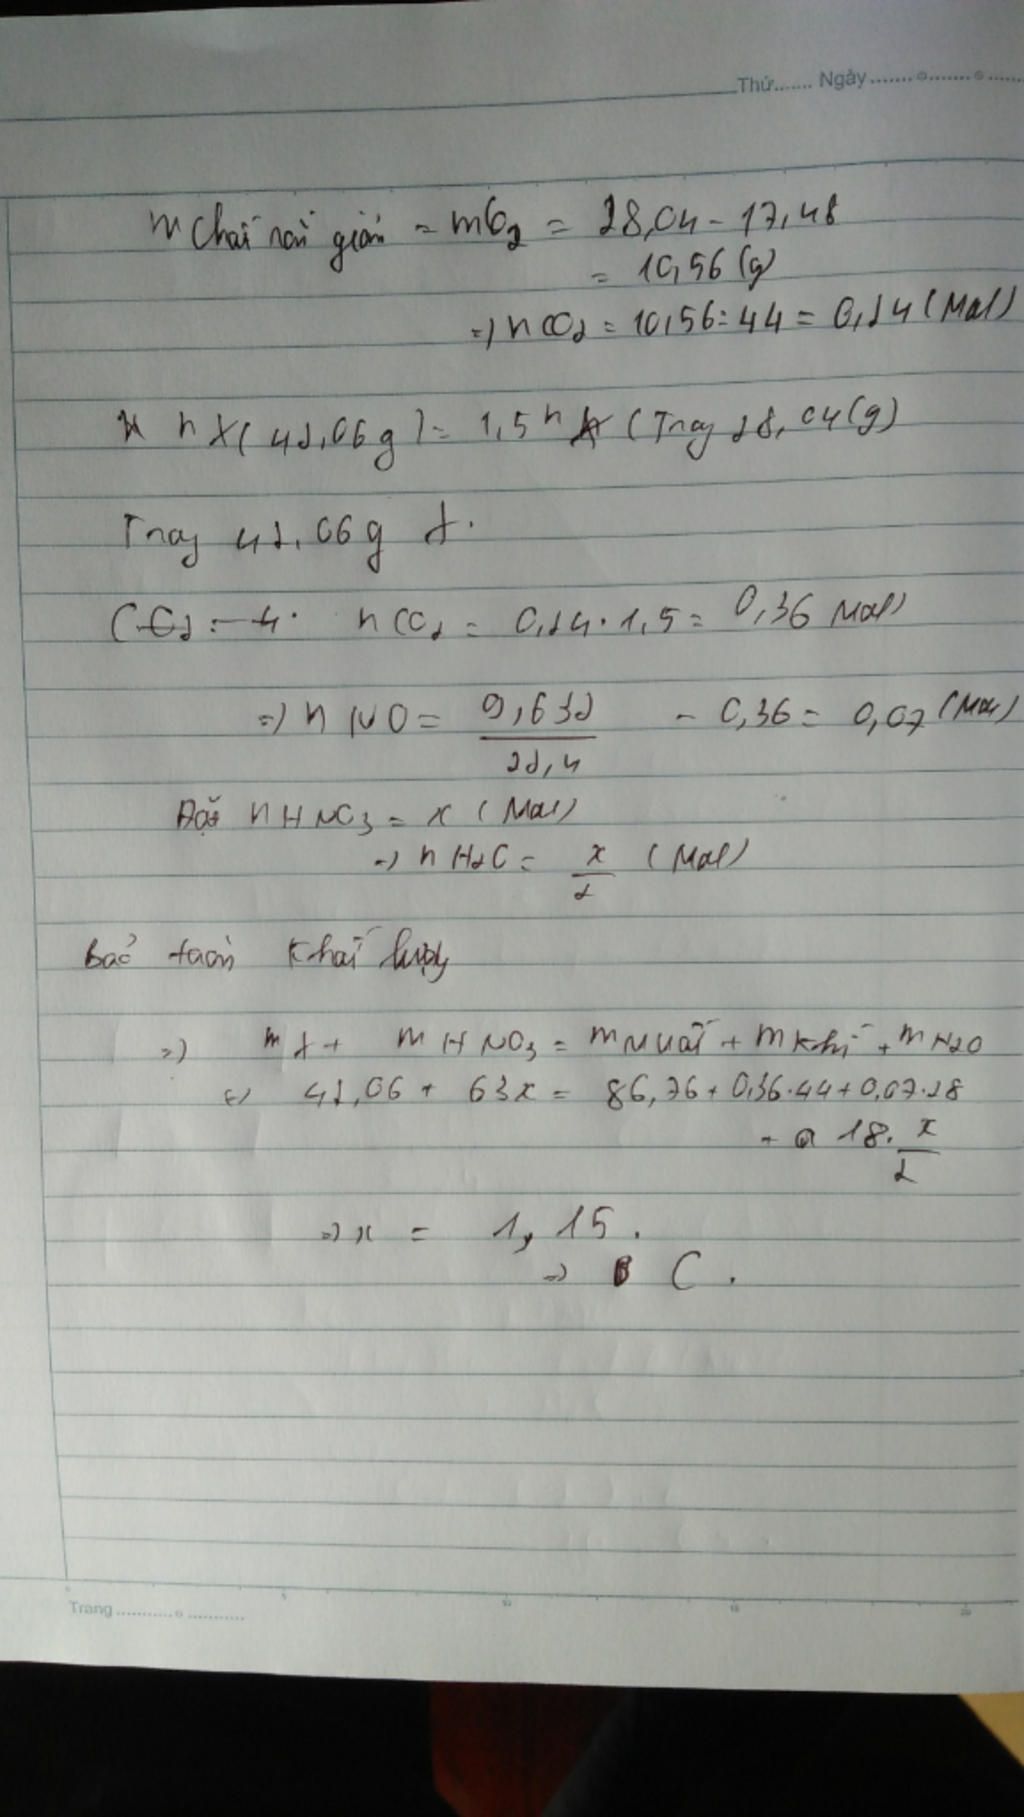 Thứ....... Ngày .......o.......o......
m chất rắn giảm = mCO2 = 28,04 - 17,48
= 10,56 (g)
=) nCO2 = 10,56 : 44 = 0,24 (Mol)
n X (42,06 g) = 1,5 n X (Trong 28,04 (g)
Trong 42,06 g X.
nCO2 = 0,24 . 1,5 = 0,36 Mol)
=) n NO = 9,632 / 22,4 - 0,36 = 0,07 (Mol)
Đặt n HNO3 = x (Mol)
=) n H2O = x / 2 (Mol)
Bảo toàn Khối lượng
=) m X + m HNO3 = m Muối + m Khí + m H2O
(=) 42,06 + 63x = 86,76 + 0,36.44 + 0,07.28
+ 18. x / 2
=) x = 1,15.
=) C.
Trang ...........o...........